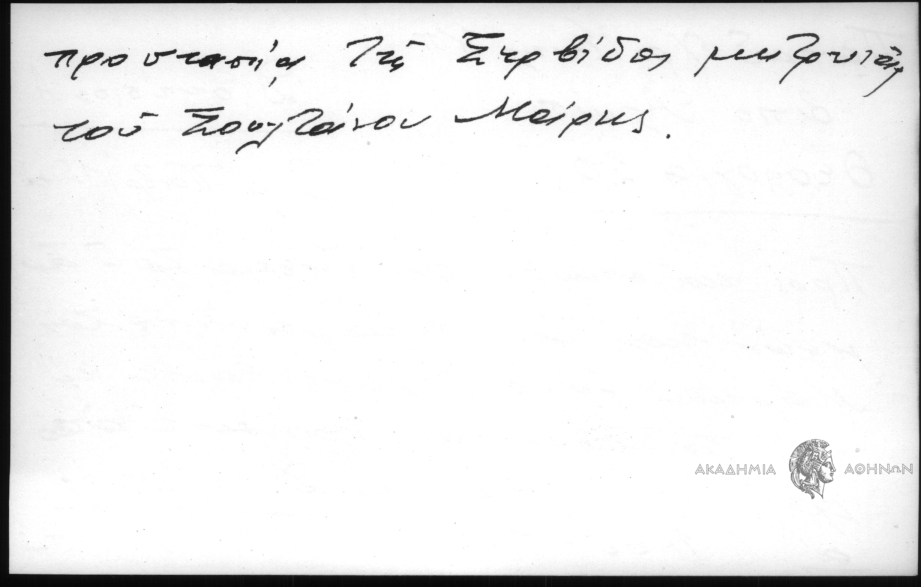 προστασίᾳ τῆς Σερβίδος μητρυιᾶς
τοῦ Σουλτάνου Μάρης.
ΑΚΑΔΗΜΙΑ ΑΘΗΝΩΝ